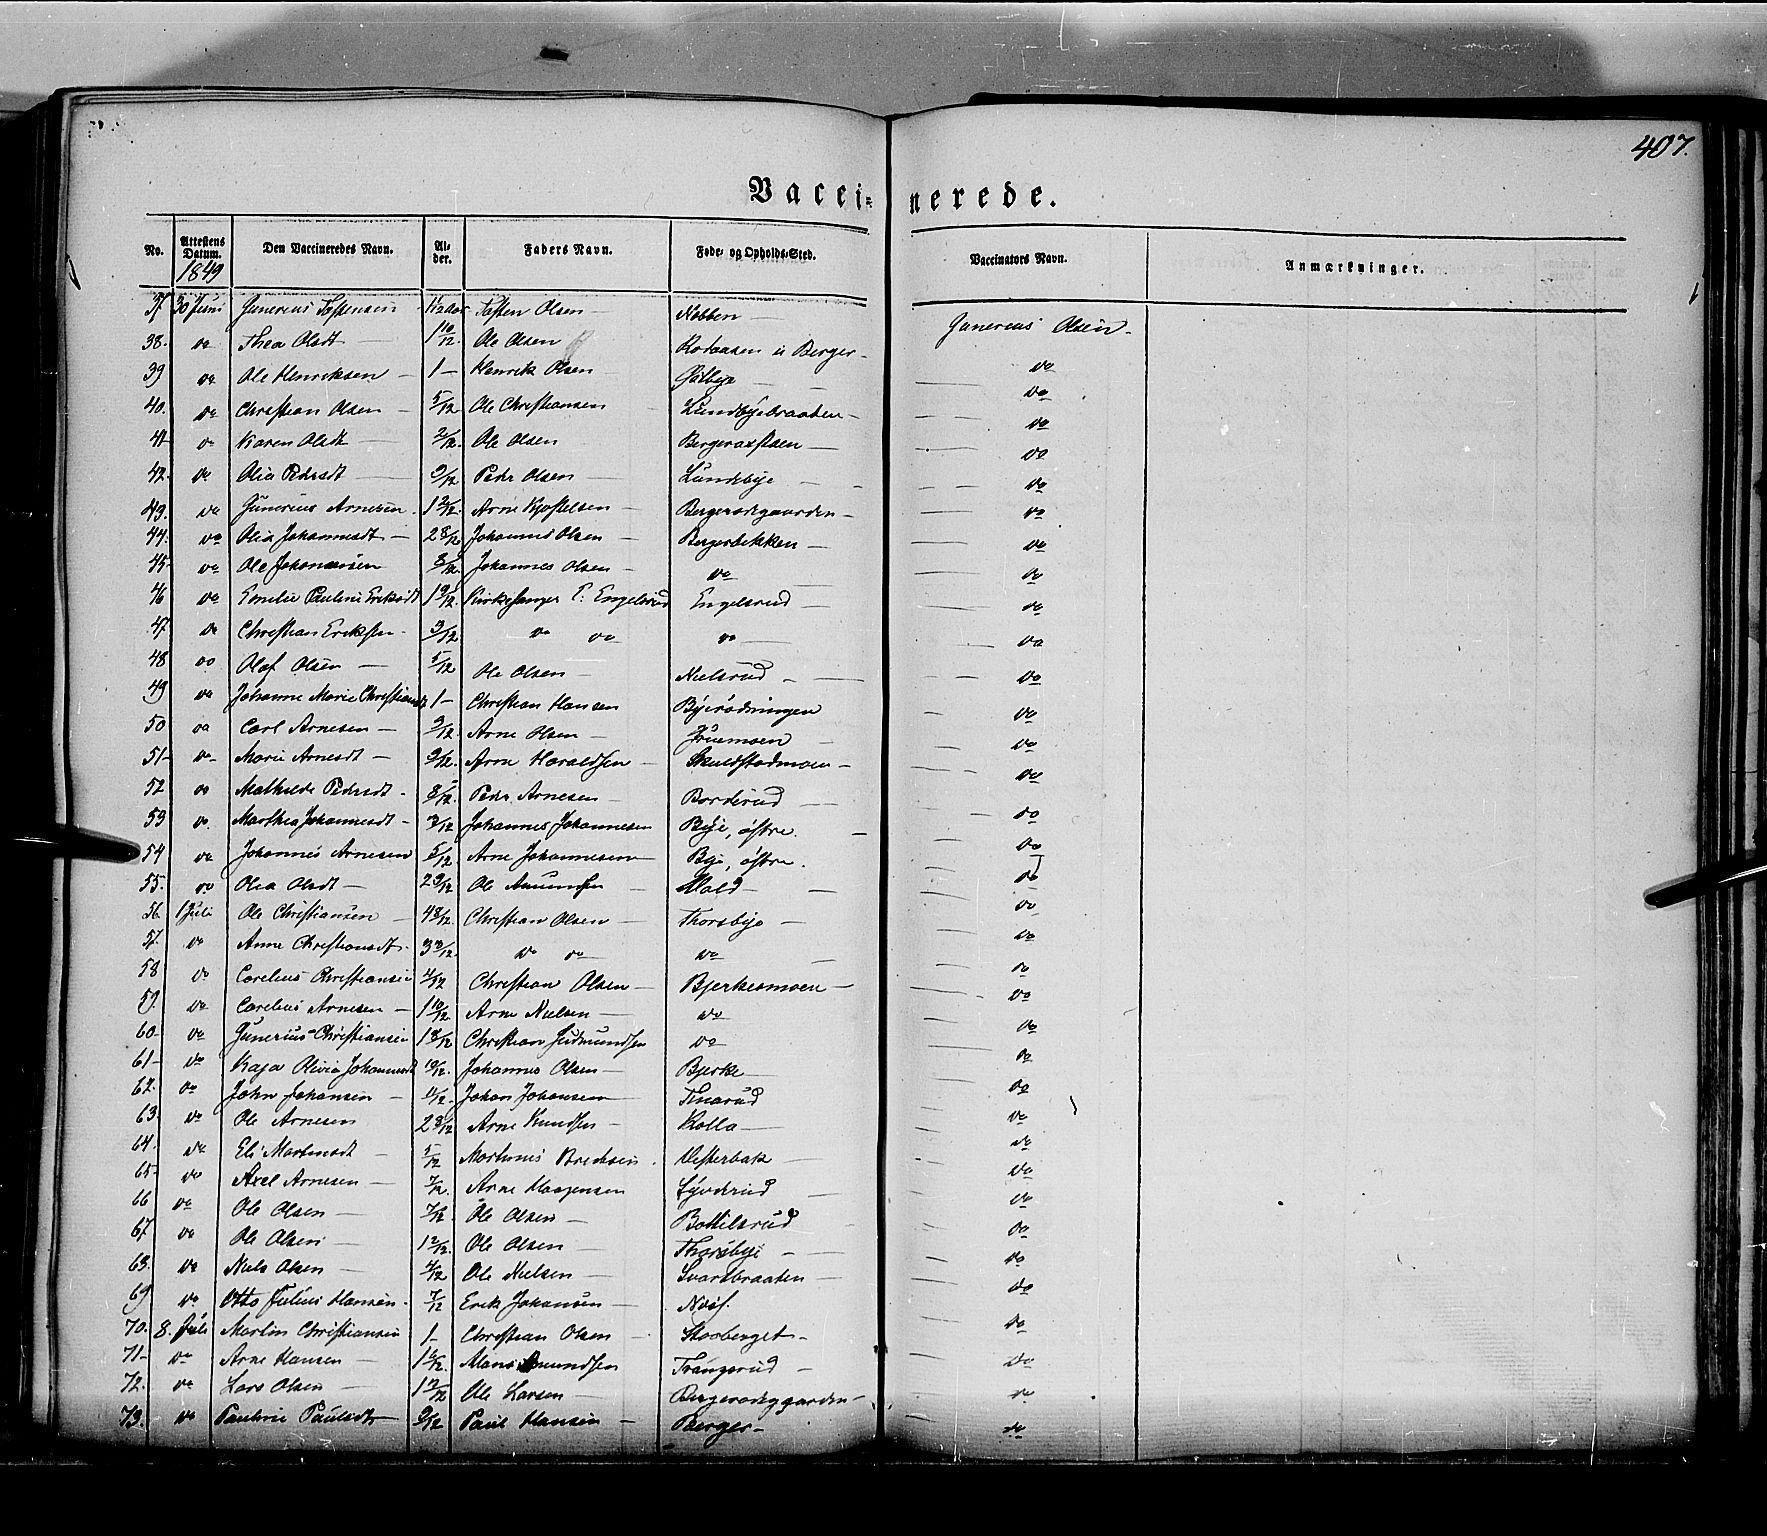 407.
Vacci-nerede.
No. Attestens Datum. Den Vaccineredes Navn. Al-der. Faders Navn. Føde- og Opholds-Sted. Vaccinators Navn. Anmærkninger.
1849
37 30 Juni Gunerius Tostensen 1 1/2 Aar Tosten Olsen Nabben Gunerius Olsen
38. do Thea Olsdt 1 10/12 Ole Olsen Rodaasen u Berger do
39 do Ole Henriksen 1 Henrik Olsen do
40. do Christian Olsen 5/12 Ole Christiansen Lundbyebraaten do
41 do Karen Olsdt 2/12 Ole Olsen do
42. do Olia Pedrsdt 9/12 Pedr Olsen Lundebye do
43. do Gunerius Arnesen 1 2/12 Arne Kjostelsen Bergerødegaarden do
44. do Olia Johannesdt 2 8/12 Johannes Olsen Bergerbekken do
45 do Ole Johannesen 8/12 Johannes Olsen do do
46 do Emilie Pauline Eriksdt 1 9/12 Kirkesanger E. Engelsrud Engelsrud do
47 do Christian Eriksen 3/12 do do do do
48 do Olaf Olsen 5/12 Ole Olsen Nielsrud do
49 do Johanne Marie Christiansdt 1 Christian Hansen Byerødningen do
50 do Carl Arnesen 9/12 Arne Olsen do
51 do Marie Arnesdt 9/12 Arne Haraldsen Skulstadmoen do
52 do Mathilde Pedrsdt 8/12 Pedr Arnesen Borderud do
53 do Marthea Johannesdt 3/12 Johannes Johannesen Bye, østre. do
54 do Johannes Arnesen 5/12 Arne Johannesen Bye, østre. do
55. do Olea Olsdt 2 9/12 Ole Amundsen Vold do
56 1 Juli Ole Christiansen 4 8/12 Christian Olsen Thorsbye do
57. do Anne Christiansdt 3 3/12 do do do do
58 do Carelius Christiansen 4/12 Christian Olsen Bjerkesmoen do
59. do Carelius Arnesen 1 10/12 Arne Nielsen do do
60 do Gunerius Christiansen 1 8/12 Christian Gudmundsen do do
61 do Kaja Olivia Johannesdt 10/12 Johannes Olsen Bjerke do
62. do John Johansen 11/12 Johan Johansen Tinarud do
63 do Ole Arnesen 2 8/12 Arne Knudsen Kolla do
64. do Eli Martinsdt 5/12 Martinus Bredesen Vesterbak do
65 do Axel Arnesen 7/12 Arne Haagensen Lyvderud do
66 do Ole Olsen 7/12 Ole Olsen Bottilsrud do
67 do Ole Olsen 1 2/12 Ole Olsen Thorsbye do
68. do Niels Olsen 4/12 Ole Nielsen Svartbraaten do
69 do Otto Julius Hansen 7/12 Erik Johansen do
70. 8. Juli Martin Christiansen 1 Christian Olsen Stoberget do
71 do Arne Hansen 1 6/12 Hans Amundsen Trangsrud do
72. do Lars Olsen 1 2/12 Ole Larsen Bergerødeggarden do
73. do Pauline Paulsdtr 9/12 Paul Hansen Berger do